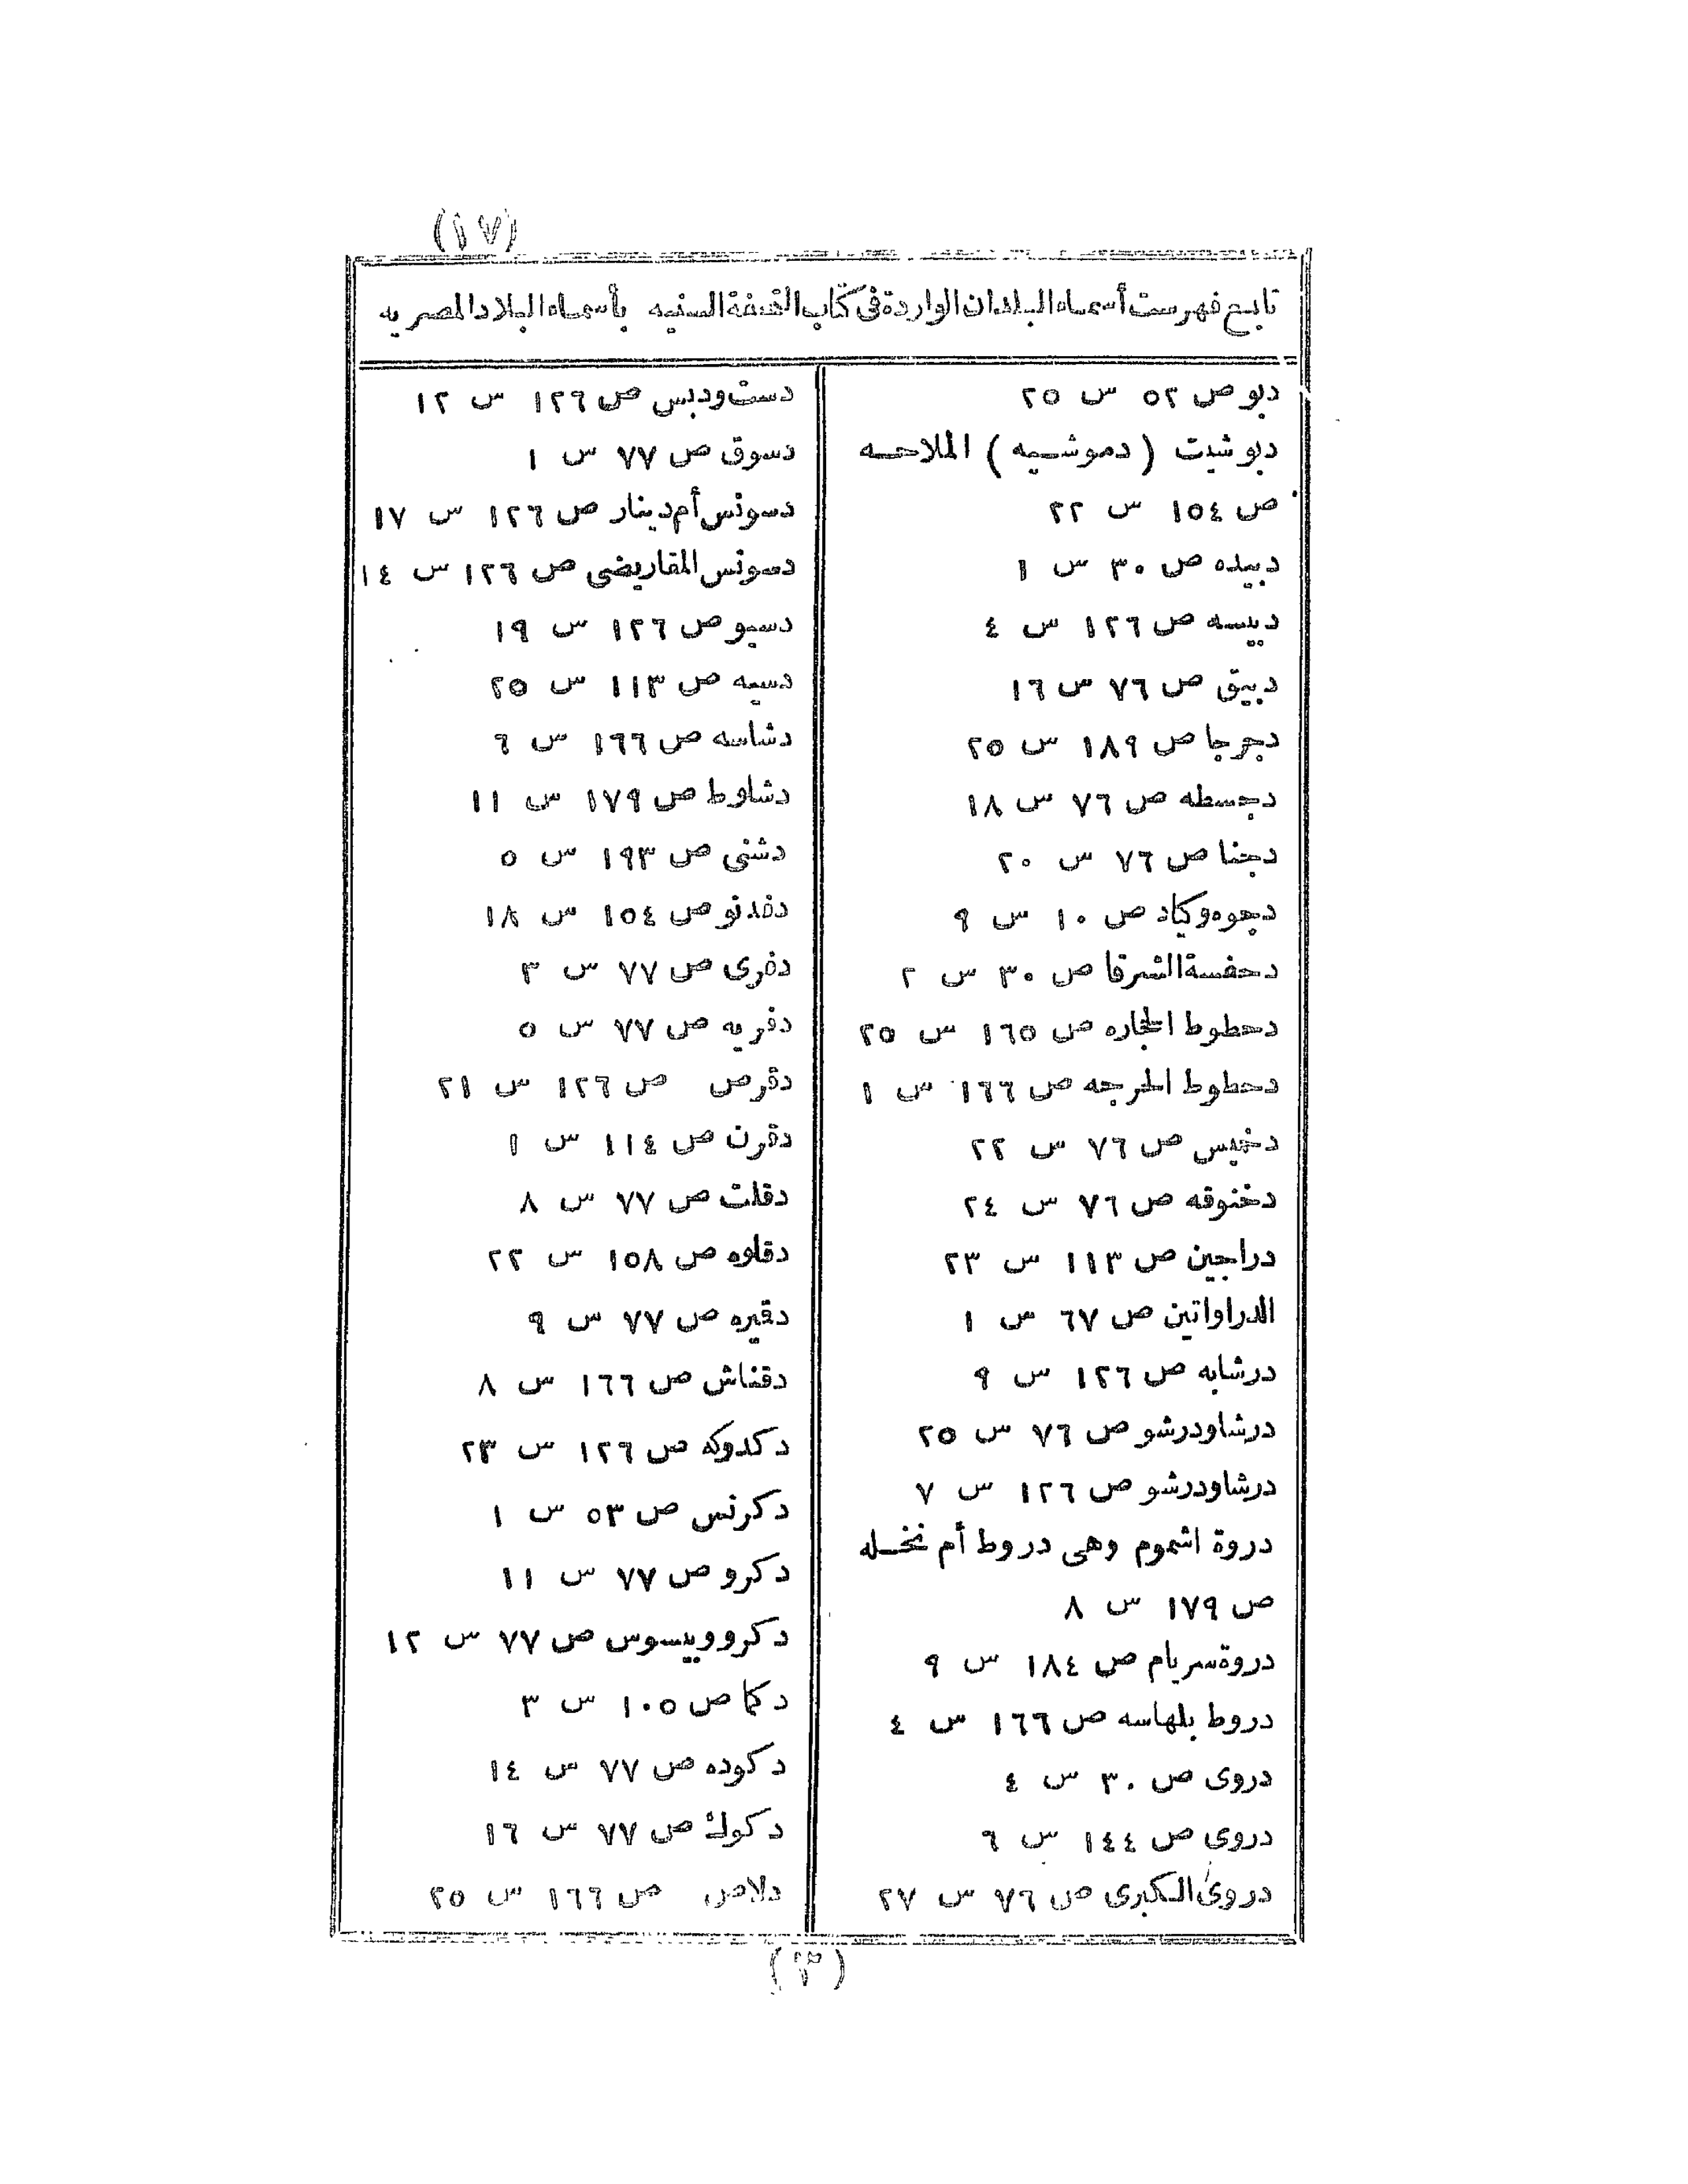 (١٧)
تابع فهرست أسماء البلدان الواردة فى كتاب التحفة السنيه بأسماء البلاد المصريه
دبو ص ٥٢ س ٢٥
دبو شيت (دموشيه) الملاحه
ص ١٥٤ س ٢٢
دبيده ص ٣٠ س ١
دبيسه ص ١٢٦ س ٤
دبيق ص ٧٦ س ١٦
دجرجا ص ١٨٩ س ٢٥
دجسطه ص ٧٦ س ١٨
دجنا ص ٧٦ س ٢٠
دجوه وكاد ص ١٠ س ٩
دحفسة الشرقا ص ٣٠ س ٢
دحطوط الحجاره ص ١٦٥ س ٢٥
دحطوط الحرجه ص ١٦٦ س ١
دخميس ص ٧٦ س ٢٢
دخنوقه ص ٧٦ س ٢٤
دراجين ص ١١٣ س ٢٣
الدراواتين ص ٦٧ س ١
درشابه ص ١٢٦ س ٩
درشاودرشو ص ٧٦ س ٢٥
درشاودرشو ص ١٢٦ س ٧
دروة اشموم وهى دروط أم نخله
ص ١٧٩ س ٨
دروة سريام ص ١٨٤ س ٩
دروط بلهاسه ص ١٦٦ س ٤
دروى ص ٣٠ س ٤
دروى ص ١٤٤ س ٦
دروى الكبرى ص ٧٦ س ٢٧
دست ودبس ص ١٢٦ س ١٢
دسوق ص ٧٧ س ١
دسونس أم دينار ص ١٢٦ س ١٧
دسونس المقاريضى ص ١٢٦ س ١٤
دسيو ص ١٢٦ س ١٩
دسيه ص ١١٣ س ٢٥
دشاسه ص ١٦٦ س ٦
دشاوط ص ١٧٩ س ١١
دشنى ص ١٩٣ س ٥
دفدنو ص ١٥٤ س ١٨
دفرى ص ٧٧ س ٣
دفريه ص ٧٧ س ٥
دقرص ص ١٢٦ س ٢١
دقرن ص ١١٤ س ١
دقلت ص ٧٧ س ٨
دقلوه ص ١٥٨ س ٢٢
دقيره ص ٧٧ س ٩
دقناش ص ١٦٦ س ٨
دكدوكه ص ١٢٦ س ٢٣
دكرنس ص ٥٣ س ١
دكرو ص ٧٧ س ١١
دكرو وبيسوس ص ٧٧ س ١٢
دكما ص ١٠٥ س ٣
دكوده ص ٧٧ س ١٤
دكوك ص ٧٧ س ١٦
دلاص ص ١٦٦ س ٢٥
(٣)